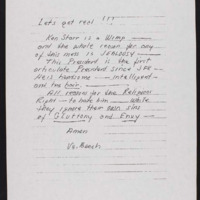 Let's get real !!!
Ken Starr is a Wimp
and the whole reason for any
of this mess is JEALOUSY -
This President is the first
articulate President since JFK
He is handsome - intelligent
and has hair.
All reason for the Religious
Right - to hate him while
they ignore their own sins
of Gluttony and Envy -
Amen